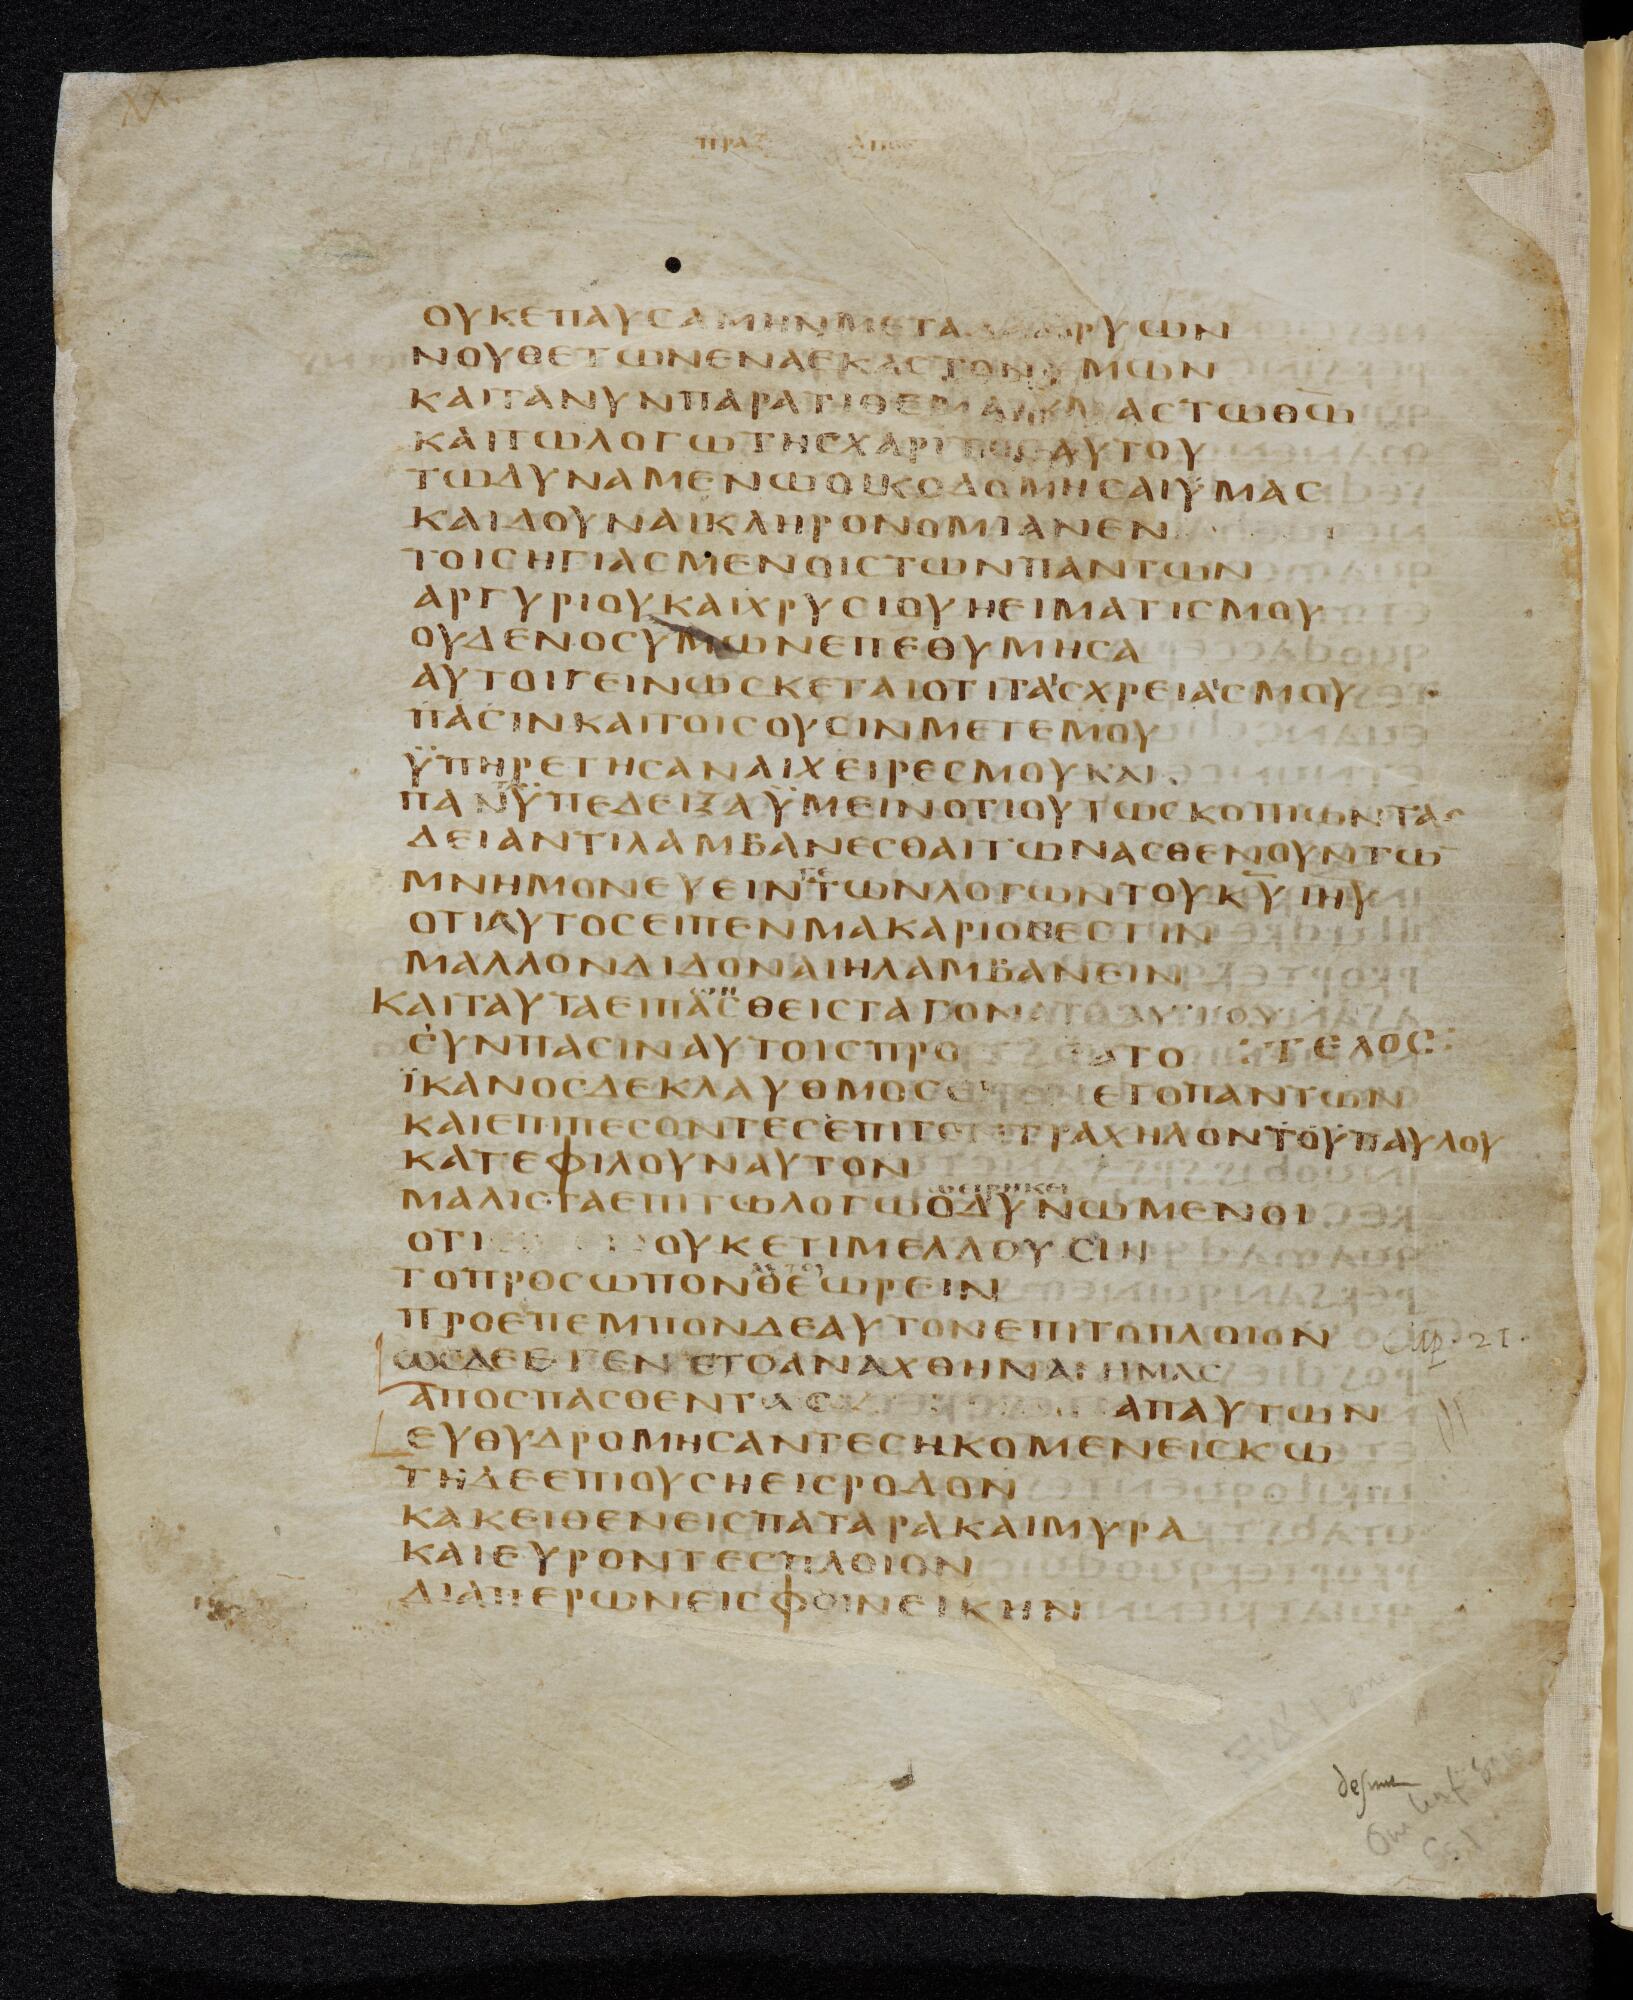 ΠΡΑΞ ΑΠΟΣ
ΟΥΚΕΠΑΥСΑΜΗΝΜΕΤΑΔΑΚΡΥΩΝ
ΝΟΥΘΕΤΩΝΕΝΑΕΚΑСΤΟΝΥΜΩΝ
ΚΑΙΤΑΝΥΝΠΑΡΑΤΙΘΕΜΑΙΥΜΑСΤΩΘ̅Ω̅
ΚΑΙΤΩΛΟΓΩΤΗСΧΑΡΙΤΟСΑΥΤΟΥ
ΤΩΔΥΝΑΜΕΝΩΟΙΚΟΔΟΜΗСΑΙΫΜΑС
ΚΑΙΔΟΥΝΑΙΚΛΗΡΟΝΟΜΙΑΝΕΝ
ΤΟΙСΗΓΙΑСΜΕΝΟΙСΤΩΝΠΑΝΤΩΝ
ΑΡΓΥΡΙΟΥΚΑΙΧΡΥСΙΟΥΗΕΙΜΑΤΙСΜΟΥ
ΟΥΔΕΝΟСΥΜΩΝΕΠΕΘΥΜΗСΑ
ΑΥΤΟΙΓΕΙΝΩСΚΕΤΑΙΟΤΙΤΑСΧΡΕΙΑСΜΟΥ
ΠΑСΙΝΚΑΙΤΟΙСΟΥСΙΝΜΕΤΕΜΟΥ
ΫΠΗΡΕΤΗСΑΝΑΙΧΕΙΡΕСΜΟΥΚΑΙ
ΠΑΝΫΠΕΔΕΙΞΑΫΜΕΙΝΟΤΙΟΥΤΩСΚΟΠΙΩΝΤΑС
ΔΕΙΑΝΤΙΛΑΜΒΑΝΕСΘΑΙΤΩΝΑСΘΕΝΟΥΝΤΩ̅
ΜΝΗΜΟΝΕΥΕΙΝΤΕΤΩΝΛΟΓΩΝΤΟΥΚ̅Υ̅ΙΗΥ
ΟΤΙΑΥΤΟСΕΙΠΕΝΜΑΚΑΡΙΟΝΕСΤΙΝ
ΜΑΛΛΟΝΔΙΔΟΝΑΙΗΛΑΜΒΑΝΕΙΝ
ΚΑΙΤΑΥΤΑΕΙΠΑСΘΕΙСΤΑΓΟΝΑΤΑΑΥΤΟΥ
СΥΝΠΑСΙΝΑΥΤΟΙСΠΡΟ ΑΤΟ :ΤΕΛΟС:
ΪΚΑΝΟСΔΕΚΛΑΥΘΜΟС ΕΤΟΠΑΝΤΩΝ
ΚΑΙΕΠΙΠΕСΟΝΤΕСΕΠΙΤΟΝΤΡΑΧΗΛΟΝΤΟΥΠΑΥΛΟΥ
ΚΑΤΕΦΙΛΟΥΝΑΥΤΟΝ
ΩΕΙΡΗΚΕΙ
ΜΑΛΙСΤΑΕΠΙΤΩΛΟΓΩΟΔΥΝΩΜΕΝΟΙ
ΟΤΙ ΟΥΚΕΤΙΜΕΛΛΟΥСΙΝ
ΑΥΤΟΥ
ΤΟΠΡΟСΩΠΟΝΘΕΩΡΕΙΝ
ΠΡΟΕΠΕΜΠΟΝΔΕΑΥΤΟΝΕΠΙΤΟΠΛΟΙΟΝ Cap. 21.
ΩСΔΕΕΓΕΝΕΤΟΑΝΑΧΘΗΝΑΙΗΜΑС
ΑΠΟСΠΑСΘΕΝΤΑС ΑΠΑΥΤΩΝ
ΕΥΘΥΔΡΟΜΗСΑΝΤΕСΗΚΟΜΕΝΕΙСΚΩ
ΤΗΔΕΕΠΙΟΥСΗΕΙСΡΟΔΟΝ
ΚΑΚΕΙΘΕΝΕΙСΠΑΤΑΡΑΚΑΙΜΥΡΑ
ΚΑΙΕΥΡΟΝΤΕСΠΛΟΙΟΝ
ΔΙΑΠΕΡΩΝΕΙСΦΟΙΝΕΙΚΗΝ